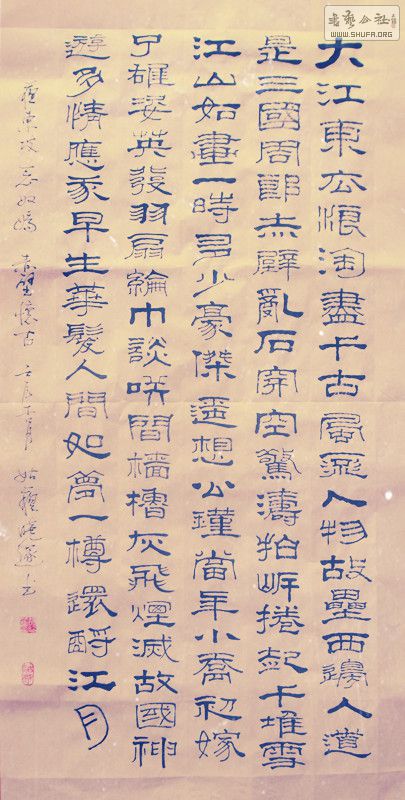 大江東去浪淘盡千古風流人物故壘西邊人道
是三國周郎赤壁亂石穿空驚濤拍岸捲起千堆雪
江山如畫一時多少豪傑遥想公瑾當年小喬初嫁
了雄姿英發羽扇綸巾談笑間檣櫓灰飛煙滅故國神
遊多情應我早生華髮人間如夢一樽還酹江月
蘇東坡念奴嬌 赤壁懷古 壬辰 月 姑蘇
書藝公社
WWW.SHUFA.ORG